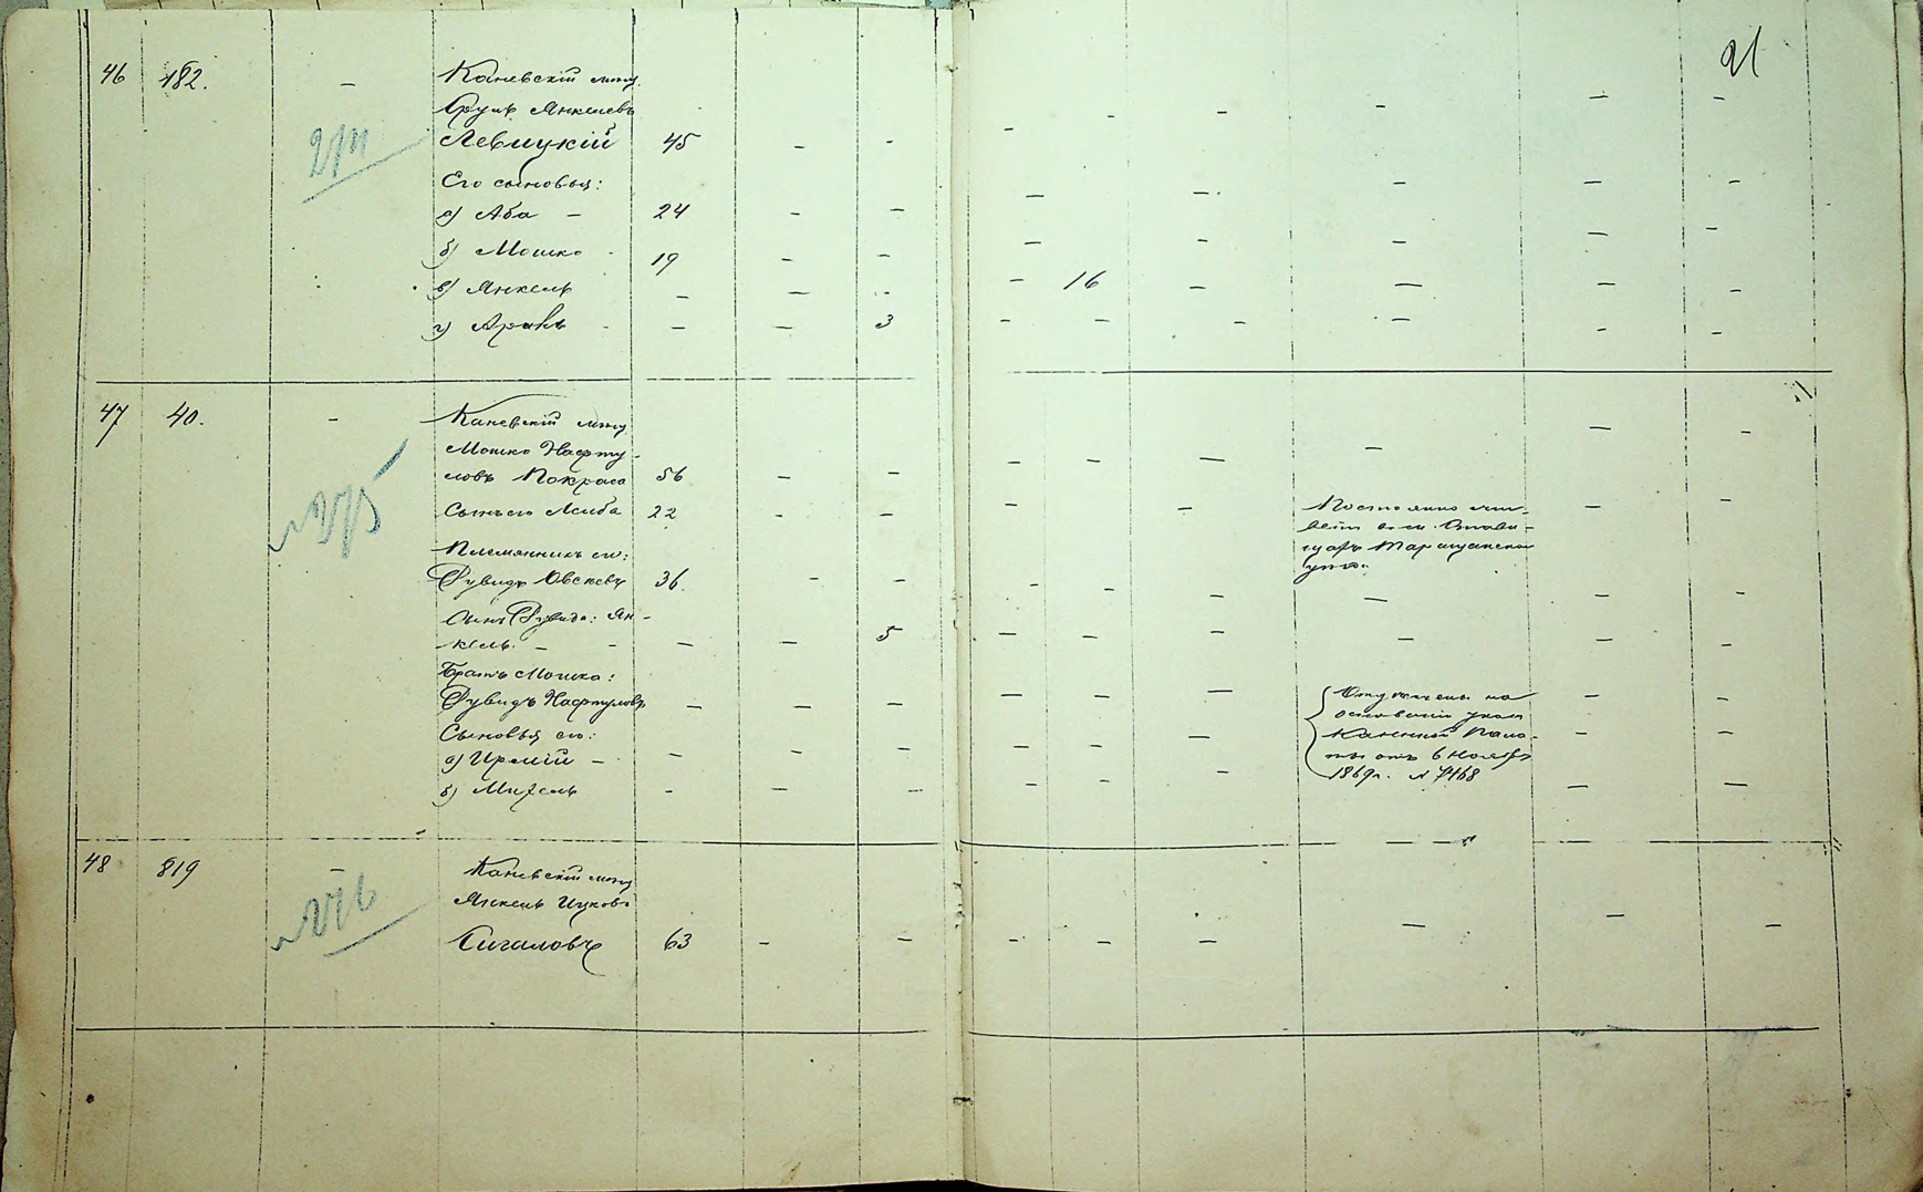 21
46 182. — Каневскій мѣщ.
Сруль Янкелевъ
274
Левицкій 45 — —
Его сыновья:
а) Аба — 24 — —
б) Мошко 19 — —
в) Янкель — — — — 16 — — — —
г) Аронъ — — 3 — — — — — —
47 40. — Каневскій мѣщ.
Мошко Нафту-
ловъ Покраса 56 — —
275
Сынъ его Лейба 22 — —
Постоянно жи-
ветъ въ м. Стави-
щахъ Таращанскаго
уѣзда.
Племянникъ его:
Рувидъ Овсеевъ 36. — —
Сынъ Рувида: Ян-
кель. — — — 5 — — — — — —
Братъ Мошка:
Рувидъ Нафтуловъ — — —
Сыновья его:
а) Ирмій — — — —
б) Михель — — —
Отчислены на
основаніи указа
Казенной Пала-
ты отъ 6 Ноября
1869г. № 7468
48 819 — Каневскій мѣщ.
276
Янкель Ицковъ
Сигаловъ 63 — — — — — — — —